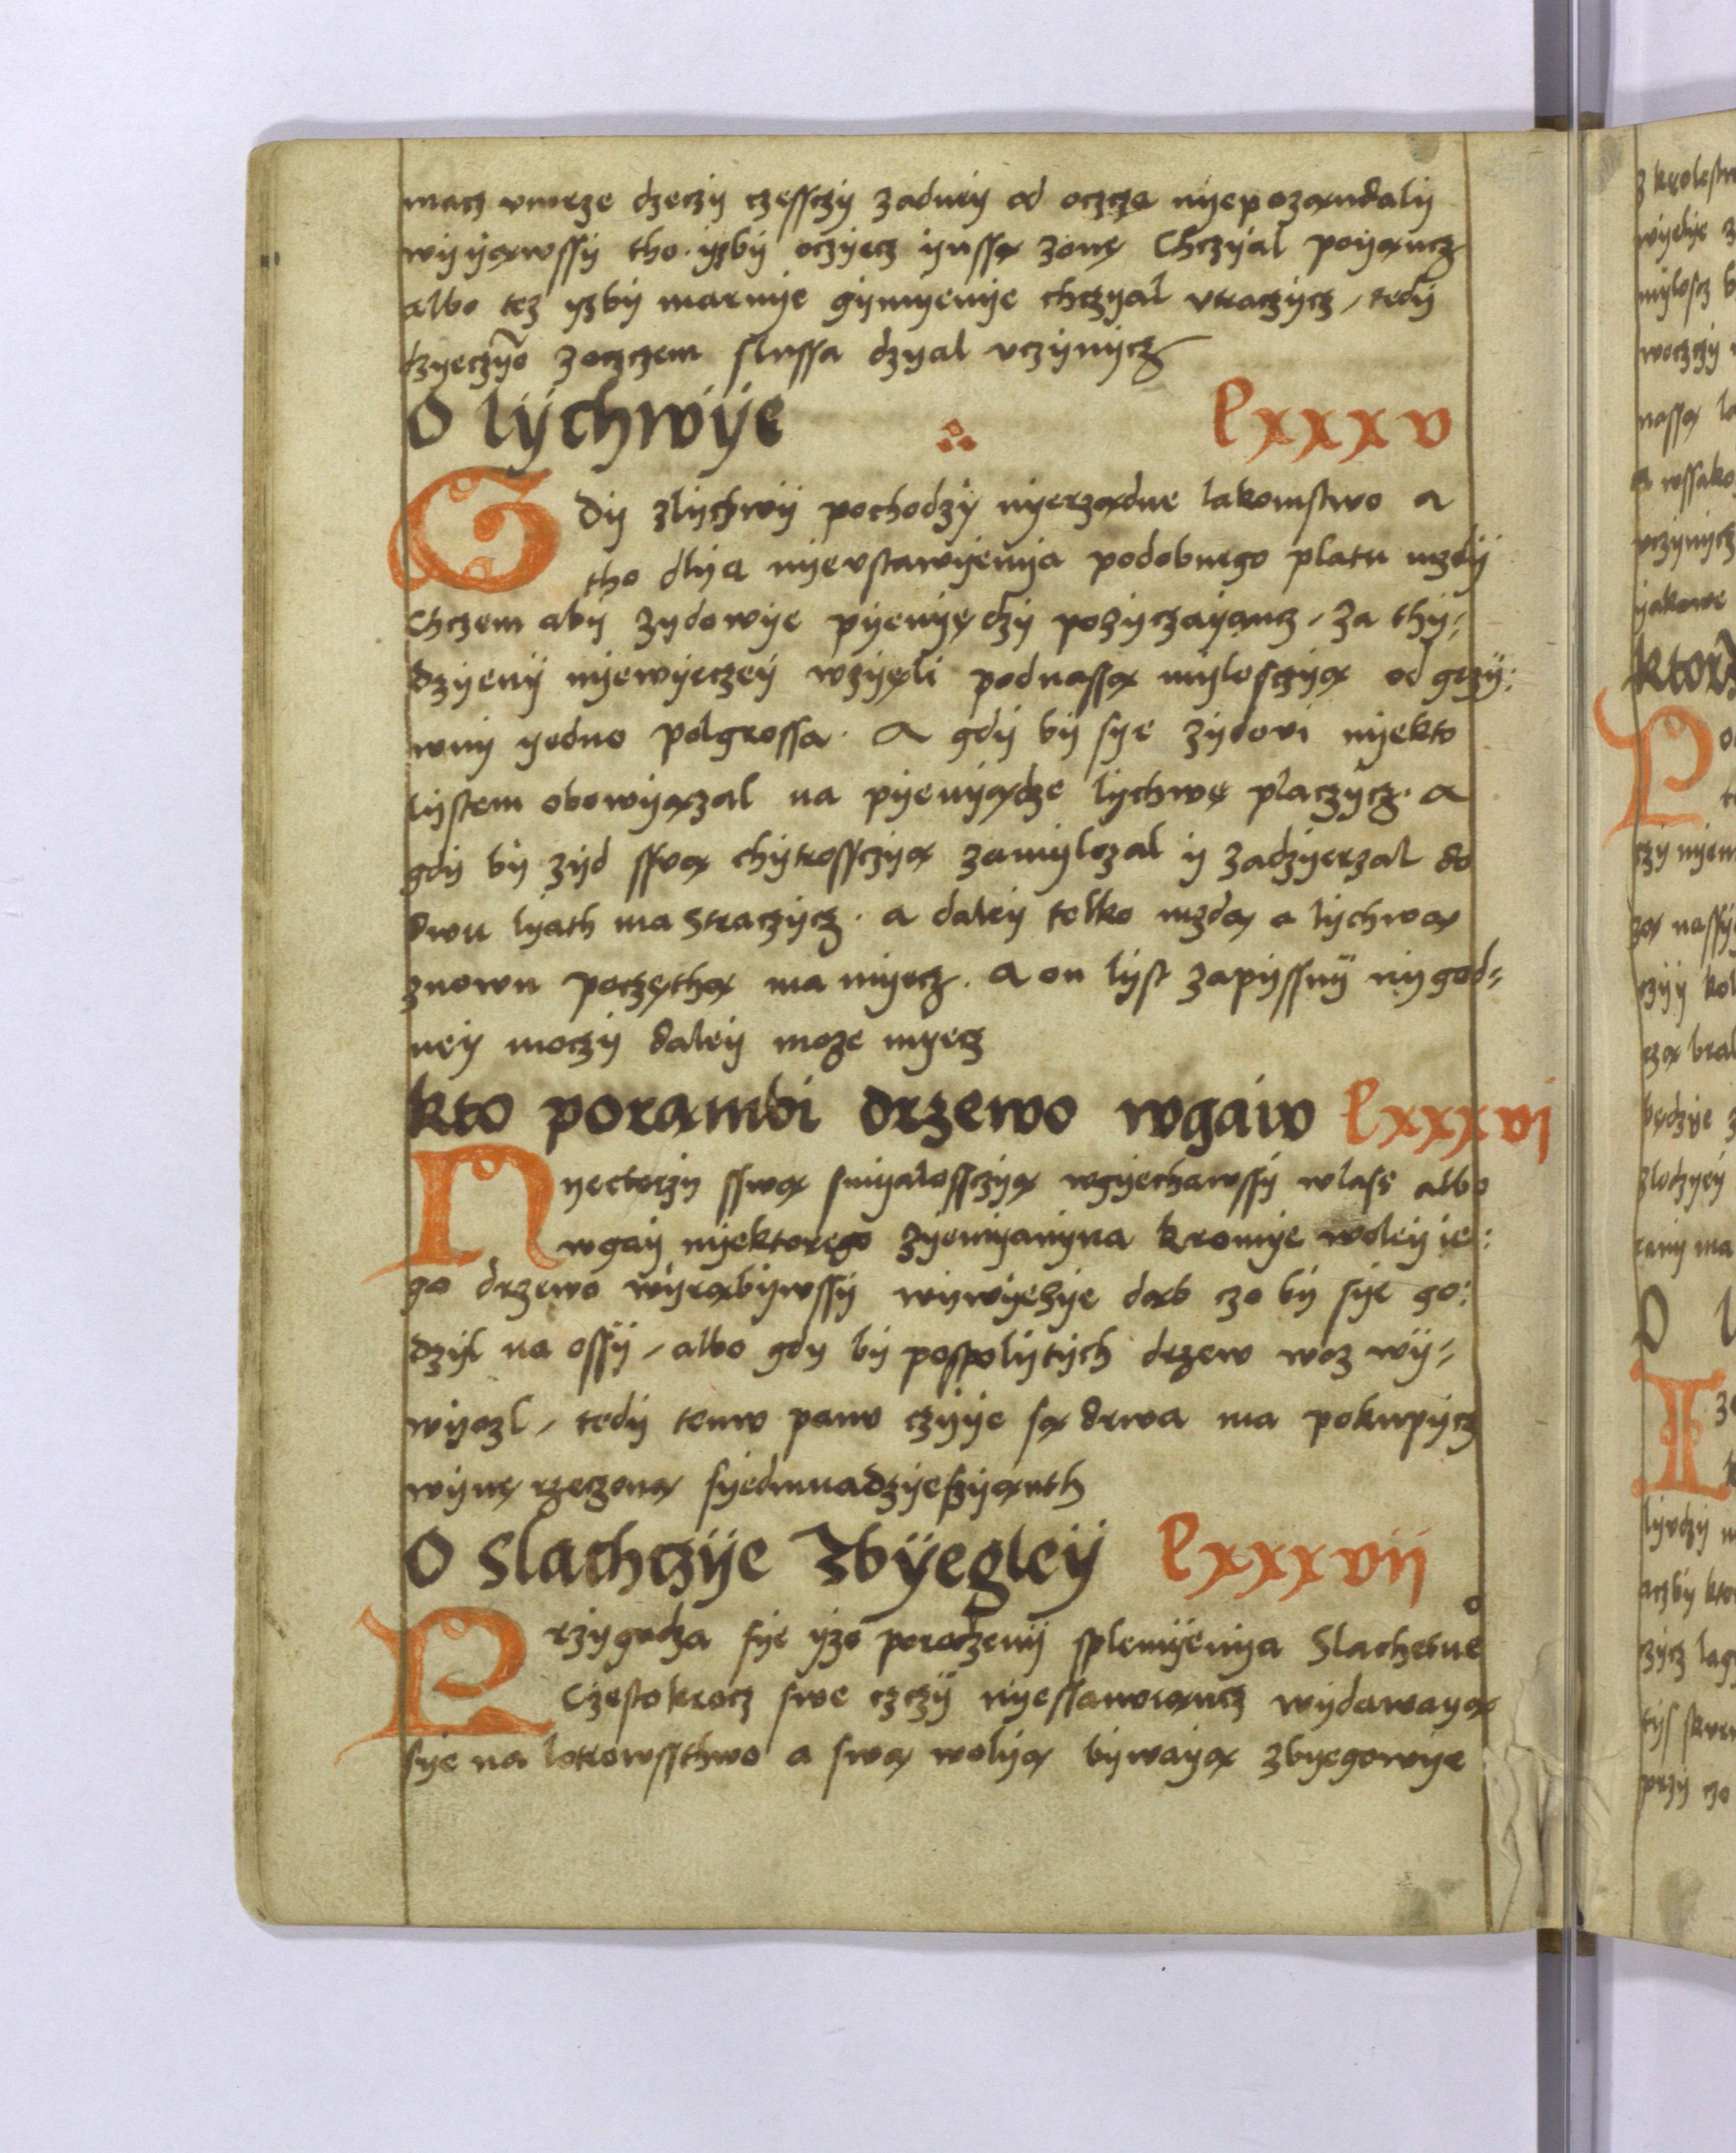 macz vmrze dzeczy czessczy zadney od oczcza nyepozandaly
wyyąwssy tho. yzby oczyecz ynssą zonę Chczyal poyąncz
albo tez yzby marnye gymyenye chczyal vtraczycz / tedy
dzyeczyo zoczczem slussa dzyal vczynycz
O lychwye lxxxv
Gdy zlychwy pochodzy nyerządne lakomstwo a
tho dlya nyevstawyenya podobnego platu mzdy
Chczem aby zydowye pyenyędzy pozyczayancz / za thy-
dzyeny nyewyeczey wzyęli podnassą myloscyą od grzy:
wny yedno polgrossa. A gdy by sye zydovi nyekto
lystem obowyązal na pyenyądze lychwę placzycz. a
gdy by zyd ssvą chytrossczyą zamylczal y zadzyerzal do
dwu lyath ma straczycz. a daley telko mzdą a lychwą
znowu poczęthą ma myecz. a on lyst zapyssny ny god-
ney moczy daley moze myecz
kto porambi drzewo wgaiw lxxxvi
Nyectorzy sswą smyalossczyą wgyechawssy wlass albo
wgay nyektorego zyemyanyna kromye woley ie:
go drzewo wyrąbywssy wywyezye dąb czo by sye go:
dzyl na ossy / albo gdy by pospolytych drzew woz wy-
wyozl / tedy temw panw czyye są drwa ma pokwpycz
wynę rzeczoną syedmnadzyesyąnth
O slachczye zbyegley lxxxvii
Przygadza sye yzo porodzeny splemyenya Slachetneo
Czestokrocz swe czczy nyessanwiąncz wydawayą
sye na lotrowssthwo a swą wolyą bywayą zbyegowye